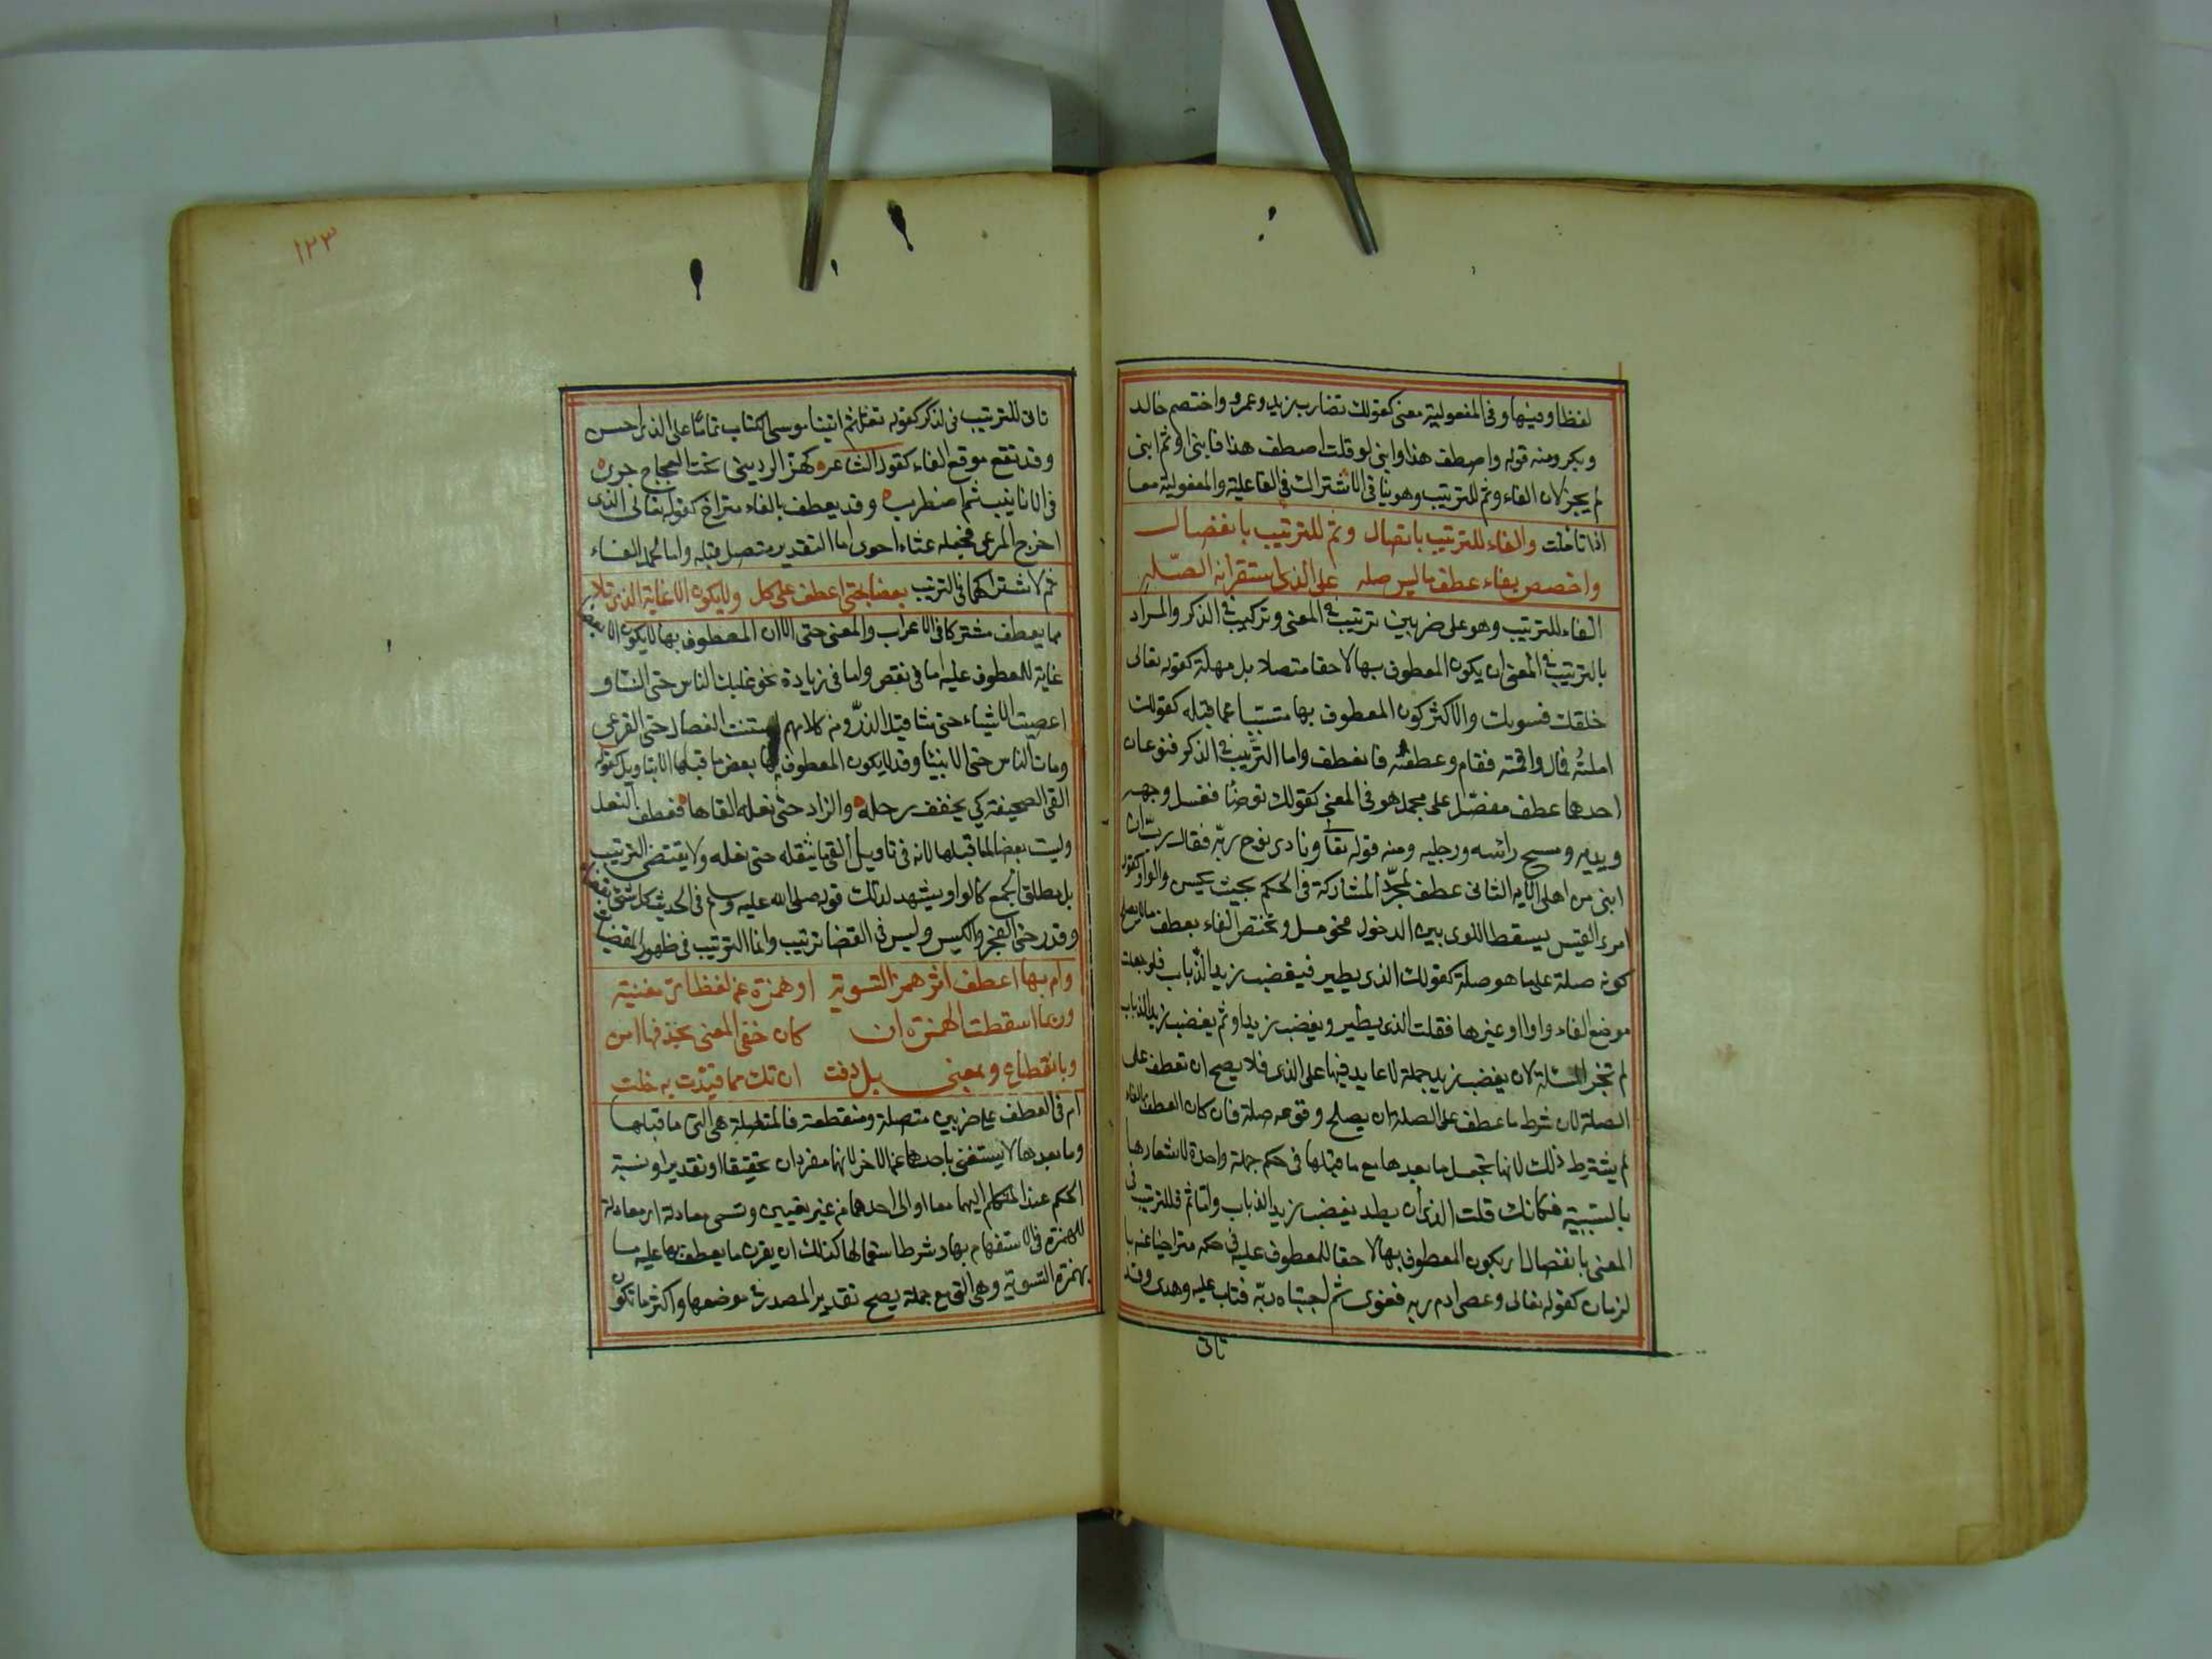 لفظا وفيها وفى المفعولية معنى كقولك تضارب زيد وعمرو واختصم خالد
وبكر ومنه قوله واصطف هذا وابنى لو قلت اصطف هذا فابنى او ثم ابنى
لم يجز لان الفاء وثم للترتيب وهو ينافى الاشتراك فى الفاعلية والمفعولية معا
اذا تاملت والفاء للترتيب باتصال وثم للترتيب بانفصال
واخصص بفاء عطف ما ليس صله على الذى استقر انه الصله
الفاء للترتيب وهو على ضربين ترتيب فى المعنى وتركيب فى الذكر والمراد
بالترتيب فى المعنى ان يكون المعطوف بها لاحقا متصلا بل مهلة كقوله تعالى
خلقك فسويك والاكثر كون المعطوف بها متسببا عما قبله كقولك
املته فمال واقمته فقام وعطفته فانعطف واما الترتيب فى الذكر فنوعان
احدهما عطف مفصل على مجمل هو فى المعنى كقولك توضأ فغسل وجهه
ويديه ومسح راسه ورجليه ومنه قوله تعا ونادى نوح ربه فقال رب ان
ابنى من اهلى الايه الثانى عطف لمجرد المشاركة فى الحكم بحيث يحسن والواو كقول
امرئ القيس بسقط اللوى بين الدخول فحومل وتختص الفاء بعطف ما لا يصلح
كونه صلة على ما هو صلة كقولك الذى يطير فيغضب زيد الذباب فلو جعلت
موضع الفاء واوا او غيرها فقلت الذى يطير ويغضب زيد او ثم يغضب زيد الذباب
لم تجز المسئلة لان يغضب زيد جملة لا عايد فيها على الذى فلا يصح ان تعطف على
الصلة لان شرط ما عطف على الصلة ان يصلح وقوعه صلة فان كان العطف بالفاء
لم يشترط ذلك لانها تجعل ما بعدها مع ما قبلها فى حكم جملة واحدة لاشعارها
بالسببية فكانك قلت الذى ان يطر يغضب زيد الذباب واما ثم فللترتيب فى
المعنى بانفصال اى يكون المعطوف بها لاحقا للمعطوف عليه فى حكمه متراخيا عنه با
لزمان كقوله تعالى وعصى ادم ربه فغوى ثم اجتباه ربه فتاب عليه وهدى وقد
تاتى
١٢٣
تاتى للترتيب فى الذكر كقوله تعالى ثم اتينا موسى الكتاب تماما على الذى احسن
وقد تقع موقع الفاء كقول الشاعر كهز الردينى تحت العجاج جرى
فى الانابيب ثم اضطرب وقد يعطف بالفاء متراخ كقوله تعالى الذى
اخرج المرعى فجعله غثاء احوى اما التقدير متصل قبله واما لحمل الفاء
ثم لاشتراكهما فى الترتيب بعضا بحتى اعطف على كل ولا يكون الا غاية الذى تلا
مما يعطف مشتركا فى الاعراب والمعنى حتى الا ان المعطوف بها لا يكون الا بعض
غاية للمعطوف عليه اما فى نقص واما فى زيادة نحو غلبك الناس حتى النساء و
اعصيت الاشياء حتى مثاقيل الذر ومنه كلامهم استنت الفصال حتى القرعى
ومات الناس حتى الانبيا وقد لا يكون المعطوف بها بعض ما قبلها الا بتاويل كقوله
القى الصحيفة كى يخفف رحله والزاد حتى نعله القاها فعطف النعل
وليست بعضا لما قبلها لانه فى تاويل القى ما يثقله حتى نعله ولا يقتضى الترتيب
بل مطلق الجمع كالواو يشهد لذلك قوله صلى الله عليه وسلم فى الحديث كل شئ بقضاء
وقدر حتى العجز والكيس وليس فى القضا ترتيب وانما الترتيب فى ظهور المقضيات
وام بها اعطف اثر همز التسويه او همزة عن لفظ اى مغنيه
وربما اسقطت الهمزة ان كان خفى المعنى بحذفها امن
وبانقطاع وبمعنى بل وفت ان تك مما قيدت به خلت
ام فى العطف على ضربين متصلة ومنقطعة فالمتصلة هى التى ما قبلها
وما بعدها لا يستغنى باحدهما عن الاخر لانهما مفردان تحقيقا او تقديرا ونسبة
الحكم عند المتكلم اليهما معا او الى احدهما من غير تعيين وتسمى معادلة اى معادلة
للهمزة فى الاستفهام بها وشرط استعمالها كذلك ان يقرن ما يعطف بها عليه اما
بهمزة التسوية وهى التى مع جملة يصح تقدير المصدر فى موضعها واكثر ما تكون